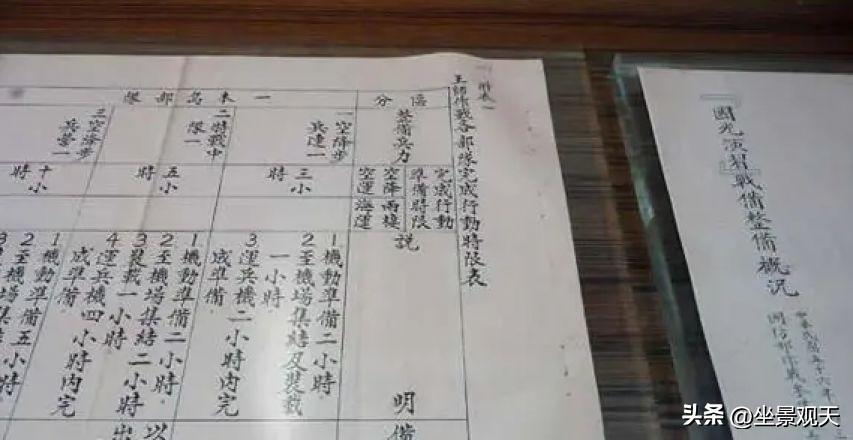 附表一
王師作戰各部隊完成行動時限表
區分
整備兵力
完成行動
準備時限
空降兩棲
空運海運
說明
一本島部隊
一空降步
兵連一
三小時
1機動準備二小時
2至機場集結及裝載
一小時
3運兵機二小時內完
成準備
二特戰中
隊一
五小時
1機動準備二小時
2至機場集結二小時
3裝載一小時
4運兵機四小時內完
成準備
三空降步
兵營一
十小時
1機動準備五小時
2至機場集結
備
以
出
『國光演習』戰備整備概況
中華民國五十六年
國防部作戰
头条 @坐景观天